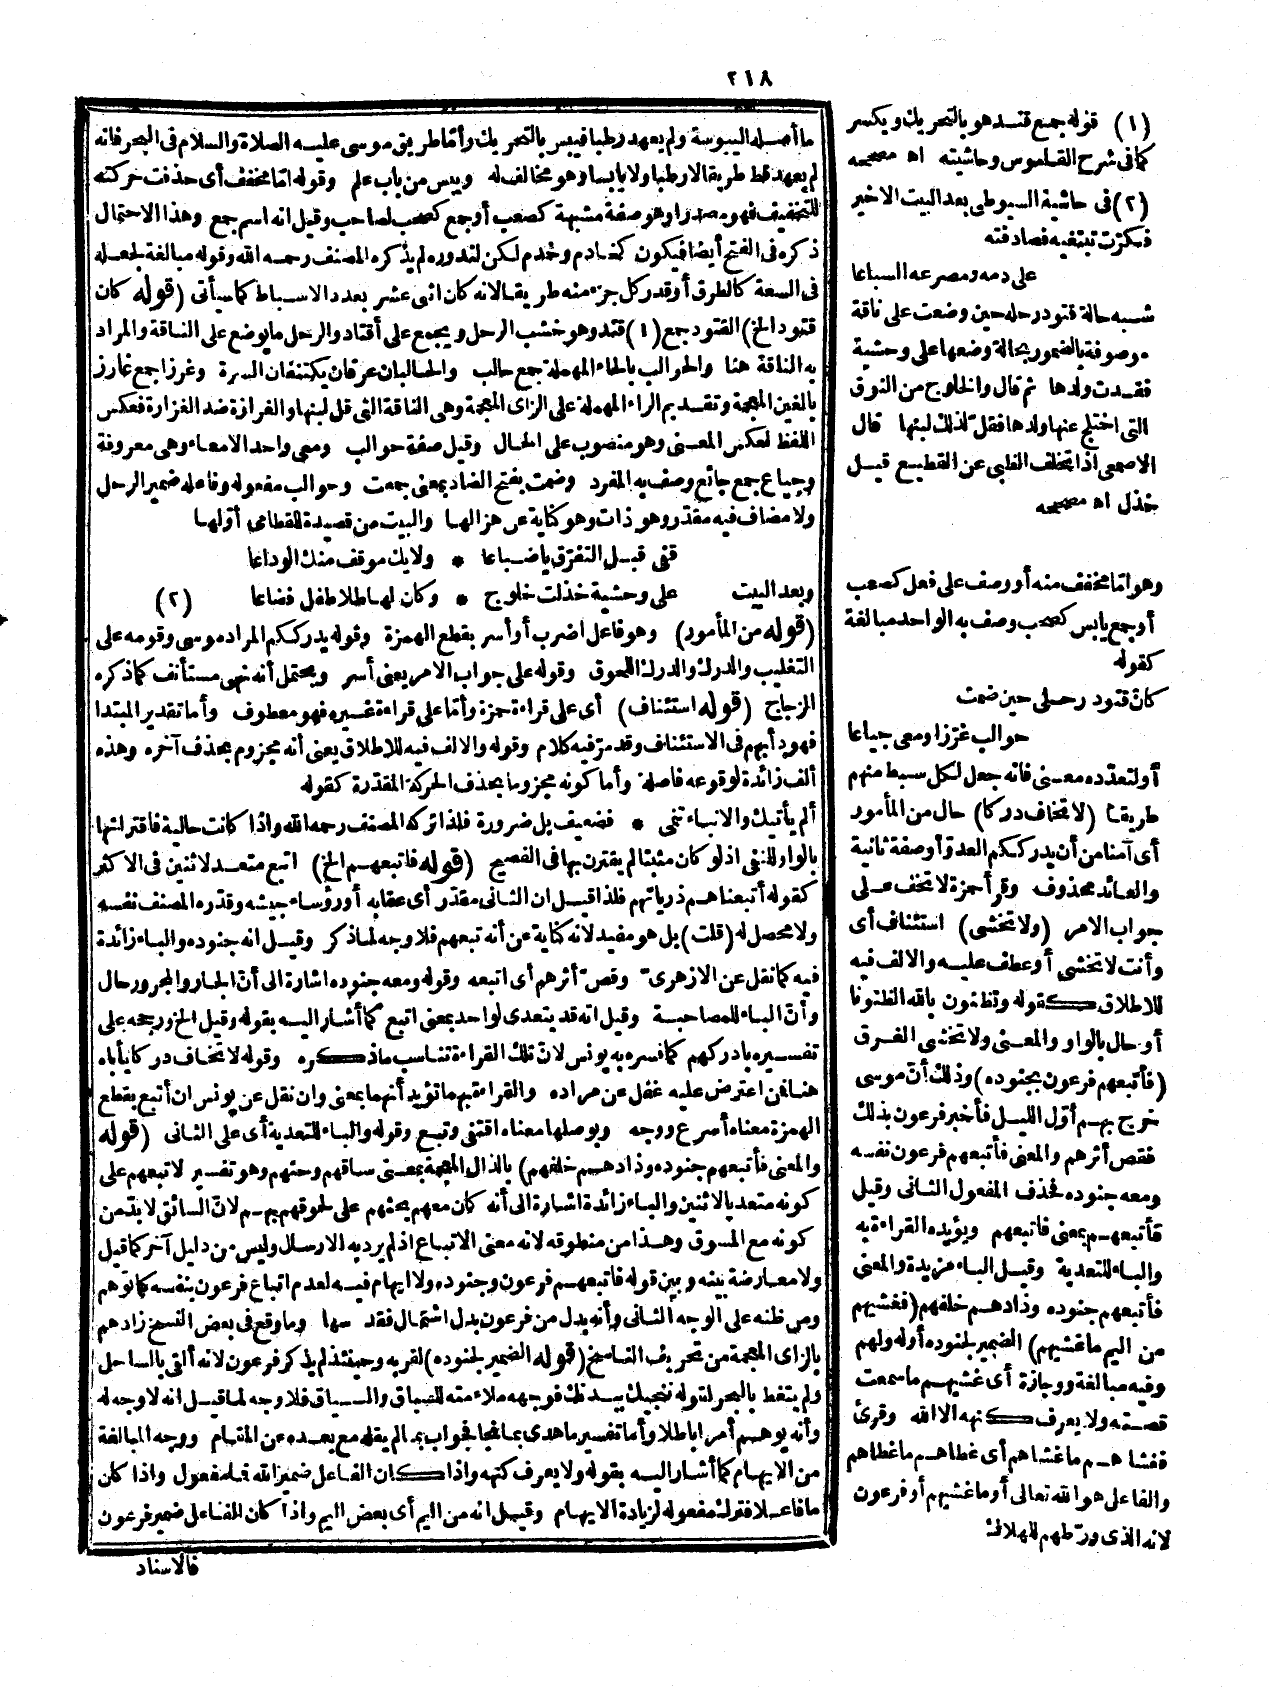 ٢١٨
ما أصله اليبوسة ولم يعهد رطبا فيبس بالتحريك وأما طريق موسى عليه الصلاة والسلام فى البحر فانه
لم يعهد قط طريقا لا رطبا ولا يابسا وهو مخالف له ويبس من باب علم وقوله اما مخفف أى حذفت حركته
للتخفيف فهو مصدر أو هو صفة مشبهة كصعب أو جمع كصحب لصاحب وقيل انه اسم جمع وهذا الاحتمال
ذكره فى الفتح أيضا فيكون كخادم وخدم لكن لندوره لم يذكره المصنف رحمه الله وقوله مبالغة لجعله
فى السعة كالطرق أو قدر كل جزء منه طريقا لانه كان اثنى عشر بعدد الاسباط كما سيأتى (قوله كان
قتود الخ) القتود جمع (١) قتد وهو خشب الرحل ويجمع على أقتاد والرحل ما يوضع على الناقة والمراد
به الناقة هنا والحوالب بالحاء المهملة جمع حالب والحالبان عرقان يكتنفان السرة وغرزا جمع غارز
بالغين المعجمة وتقديم الراء المهملة على الزاى المعجمة وهى الناقة التى قل لبنها والغرازة ضد الغزارة فعكس
اللفظ لعكس المعنى وهو منصوب على الحال وقيل صفة حوالب ومعى واحد الامعاء وهى معروفة
وجياع جمع جائع وصف به المفرد وضمت بفتح الضاد بمعنى جمعت وحوالب مفعوله وفاعله ضمير الرحل
ولا مضاف فيه مقدر وهو ذات وهو كناية عن هزالها والبيت من قصيدة للقطامى أولها
قفى قبل التفرق يا ضباعا * ولا يك موقف منك الوداعا
وبعد البيت على وحشية خذلت خلوج * وكان لها طلا طفل فضاعا (٢)
(قوله من المأمور) وهو فاعل اضرب أو أسر بقطع الهمزة وقوله يدرككم المراد موسى وقومه على
التغليب والدرك والدرك اللحوق وقوله على جواب الامر يعنى أسر ويحتمل أنه نهى مستأنف كما ذكره
الزجاج (قوله استئناف) أى على قراءة حمزة وأما على قراءة غيره فهو معطوف وأما تقدير المبتدا
فهو دأبهم فى الاستئناف وقد مر فيه كلام وقوله والالف فيه للاطلاق يعنى أنه مجزوم بحذف آخره وهذه
ألف زائدة لوقوعه فاصلة وأما كونه مجزوما بحذف الحركة المقدرة كقوله
ألم يأتيك والانباء تنمى * فضعيف بل ضرورة فلذا تركه المصنف رحمه الله واذا كانت حالية فاقترانها
بالواو للنفى اذ لو كان مثبتا لم يقترن بها فى الفصيح (قوله فاتبعهم الخ) اتبع متعد لاثنين فى الاكثر
كقوله أتبعناهم ذرياتهم فلذا قيل ان الثانى مقدر أى عقابه أو رؤساء جيشه وقدره المصنف نفسه
ولا محصل له (قلت) بل هو مفيد لانه كناية عن أنه تبعهم فلا وجه لما ذكر وقيل انه جنوده والباء زائدة
فيه كما نقل عن الازهرى وقص أثرهم أى اتبعه وقوله ومعه جنوده اشارة الى أن الجار والمجرور حال
وأن الباء للمصاحبة وقيل انه قد يتعدى لواحد بمعنى اتبع كما أشار اليه بقوله وقيل الخ ورجحه على
تفسيره بادركهم كما فسره به يونس لان تلك القراءة تناسب ما ذكره وقوله لا تخاف دركا يأباه
هنا فمن اعترض عليه غفل عن مراده والقراءة بهما تؤيد أنهما بمعنى وان نقل عن يونس ان أتبع بقطع
الهمزة معناه أسرع ووجه وبوصلها معناه اقتفى وتبع وقوله والباء للتعدية أى على الثانى (قوله
والمعنى فأتبعهم جنوده وذادهم خلفهم) بالذال المعجمة بمعنى ساقهم وحثهم وهو تفسير لاتبعهم على
كونه متعديا لاثنين والباء زائدة اشارة الى أنه كان معهم يحثهم على لحوقهم بهم لان السائق لا بد من
كونه مع المسوق وهذا من منطوقه لانه معنى الاتباع اذ لم يرد به الارسال وليس من دليل آخر كما قيل
ولا معارضة بينه وبين قوله فاتبعهم فرعون وجنوده ولا ايهام فيه لعدم اتباع فرعون بنفسه كما توهم
ومن ظنه على الوجه الثانى وأنه بدل من فرعون بدل اشتمال فقد سها وما وقع فى بعض النسخ زادهم
بالزاى المعجمة من تحريف الناسخ (قوله الضمير لجنوده) لقربه وحينئذ لم يذكر فرعون لانه ألقى بالساحل
ولم يتغط بالبحر لقوله ننجيك ببدنك فوجهه ملاءمته للسباق والسياق فلا وجه لما قيل انه لا وجه له
وأنه يوهم أمرا باطلا وأما تفسير ما هدى بما نجا فجواب بما لم يقله مع بعده عن المقام ووجه المبالغة
من الايهام كما أشار اليه بقوله ولا يعرف كنهه واذا كان الفاعل ضمير الله فما مفعول واذا كان
ما فاعلا فترك مفعوله لزيادة الايهام وقيل انه من اليم أى بعض اليم واذا كان الفاعل ضمير فرعون
فالاسناد
(١) قوله جمع قتد هو بالتحريك ويكسر
كما فى شرح القاموس وحاشيته اه مصححه
(٢) فى حاشية السيوطى بعد البيت الاخير
فكرت تبتغيه فصادفته
على دمه ومصرعه السباعا
شبه حالة قتود رحله حين وضعت على ناقة
موصوفة بالضمور بحالة وضعها على وحشية
فقدت ولدها ثم قال والخلوج من النوق
التى اختلج عنها ولدها فقل لذلك لبنها قال
الاصمعى اذا تخلف الظبى عن القطيع قيل
خذل اه مصححه
وهو اما مخفف منه أو وصف على فعل كصعب
أو جمع يابس كصحب وصف به الواحد مبالغة
كقوله
كأن قتود رحلى حين ضمت
حوالب غرزا ومعى جياعا
أو لتعدده معنى فانه جعل لكل سبط منهم
طريقا (لا تخاف دركا) حال من المأمور
أى آمنا من أن يدرككم العدو أو صفة ثانية
والعائد محذوف وقرأ حمزة لا تخف على
جواب الامر (ولا تخشى) استئناف أى
وأنت لا تخشى أو عطف عليه والالف فيه
للاطلاق كقوله وتظنون بالله الظنونا
أو حال بالواو والمعنى ولا تخشى الغرق
(فأتبعهم فرعون بجنوده) وذلك أن موسى
خرج بهم أول الليل فأخبر فرعون بذلك
فقص أثرهم والمعنى فأتبعهم فرعون نفسه
ومعه جنوده فحذف المفعول الثانى وقيل
فأتبعهم بمعنى فاتبعهم ويؤيده القراءة به
والباء للتعدية وقيل الباء مزيدة والمعنى
فأتبعهم جنوده وذادهم خلفهم (فغشيهم
من اليم ما غشيهم) الضمير لجنوده أو له ولهم
وفيه مبالغة ووجازة أى غشيهم ما سمعت
قصته ولا يعرف كنهه الا الله وقرئ
فغشاهم ما غشاهم أى غطاهم ما غطاهم
والفاعل هو الله تعالى أو ما غشيهم أو فرعون
لانه الذى ورطهم للهلاك